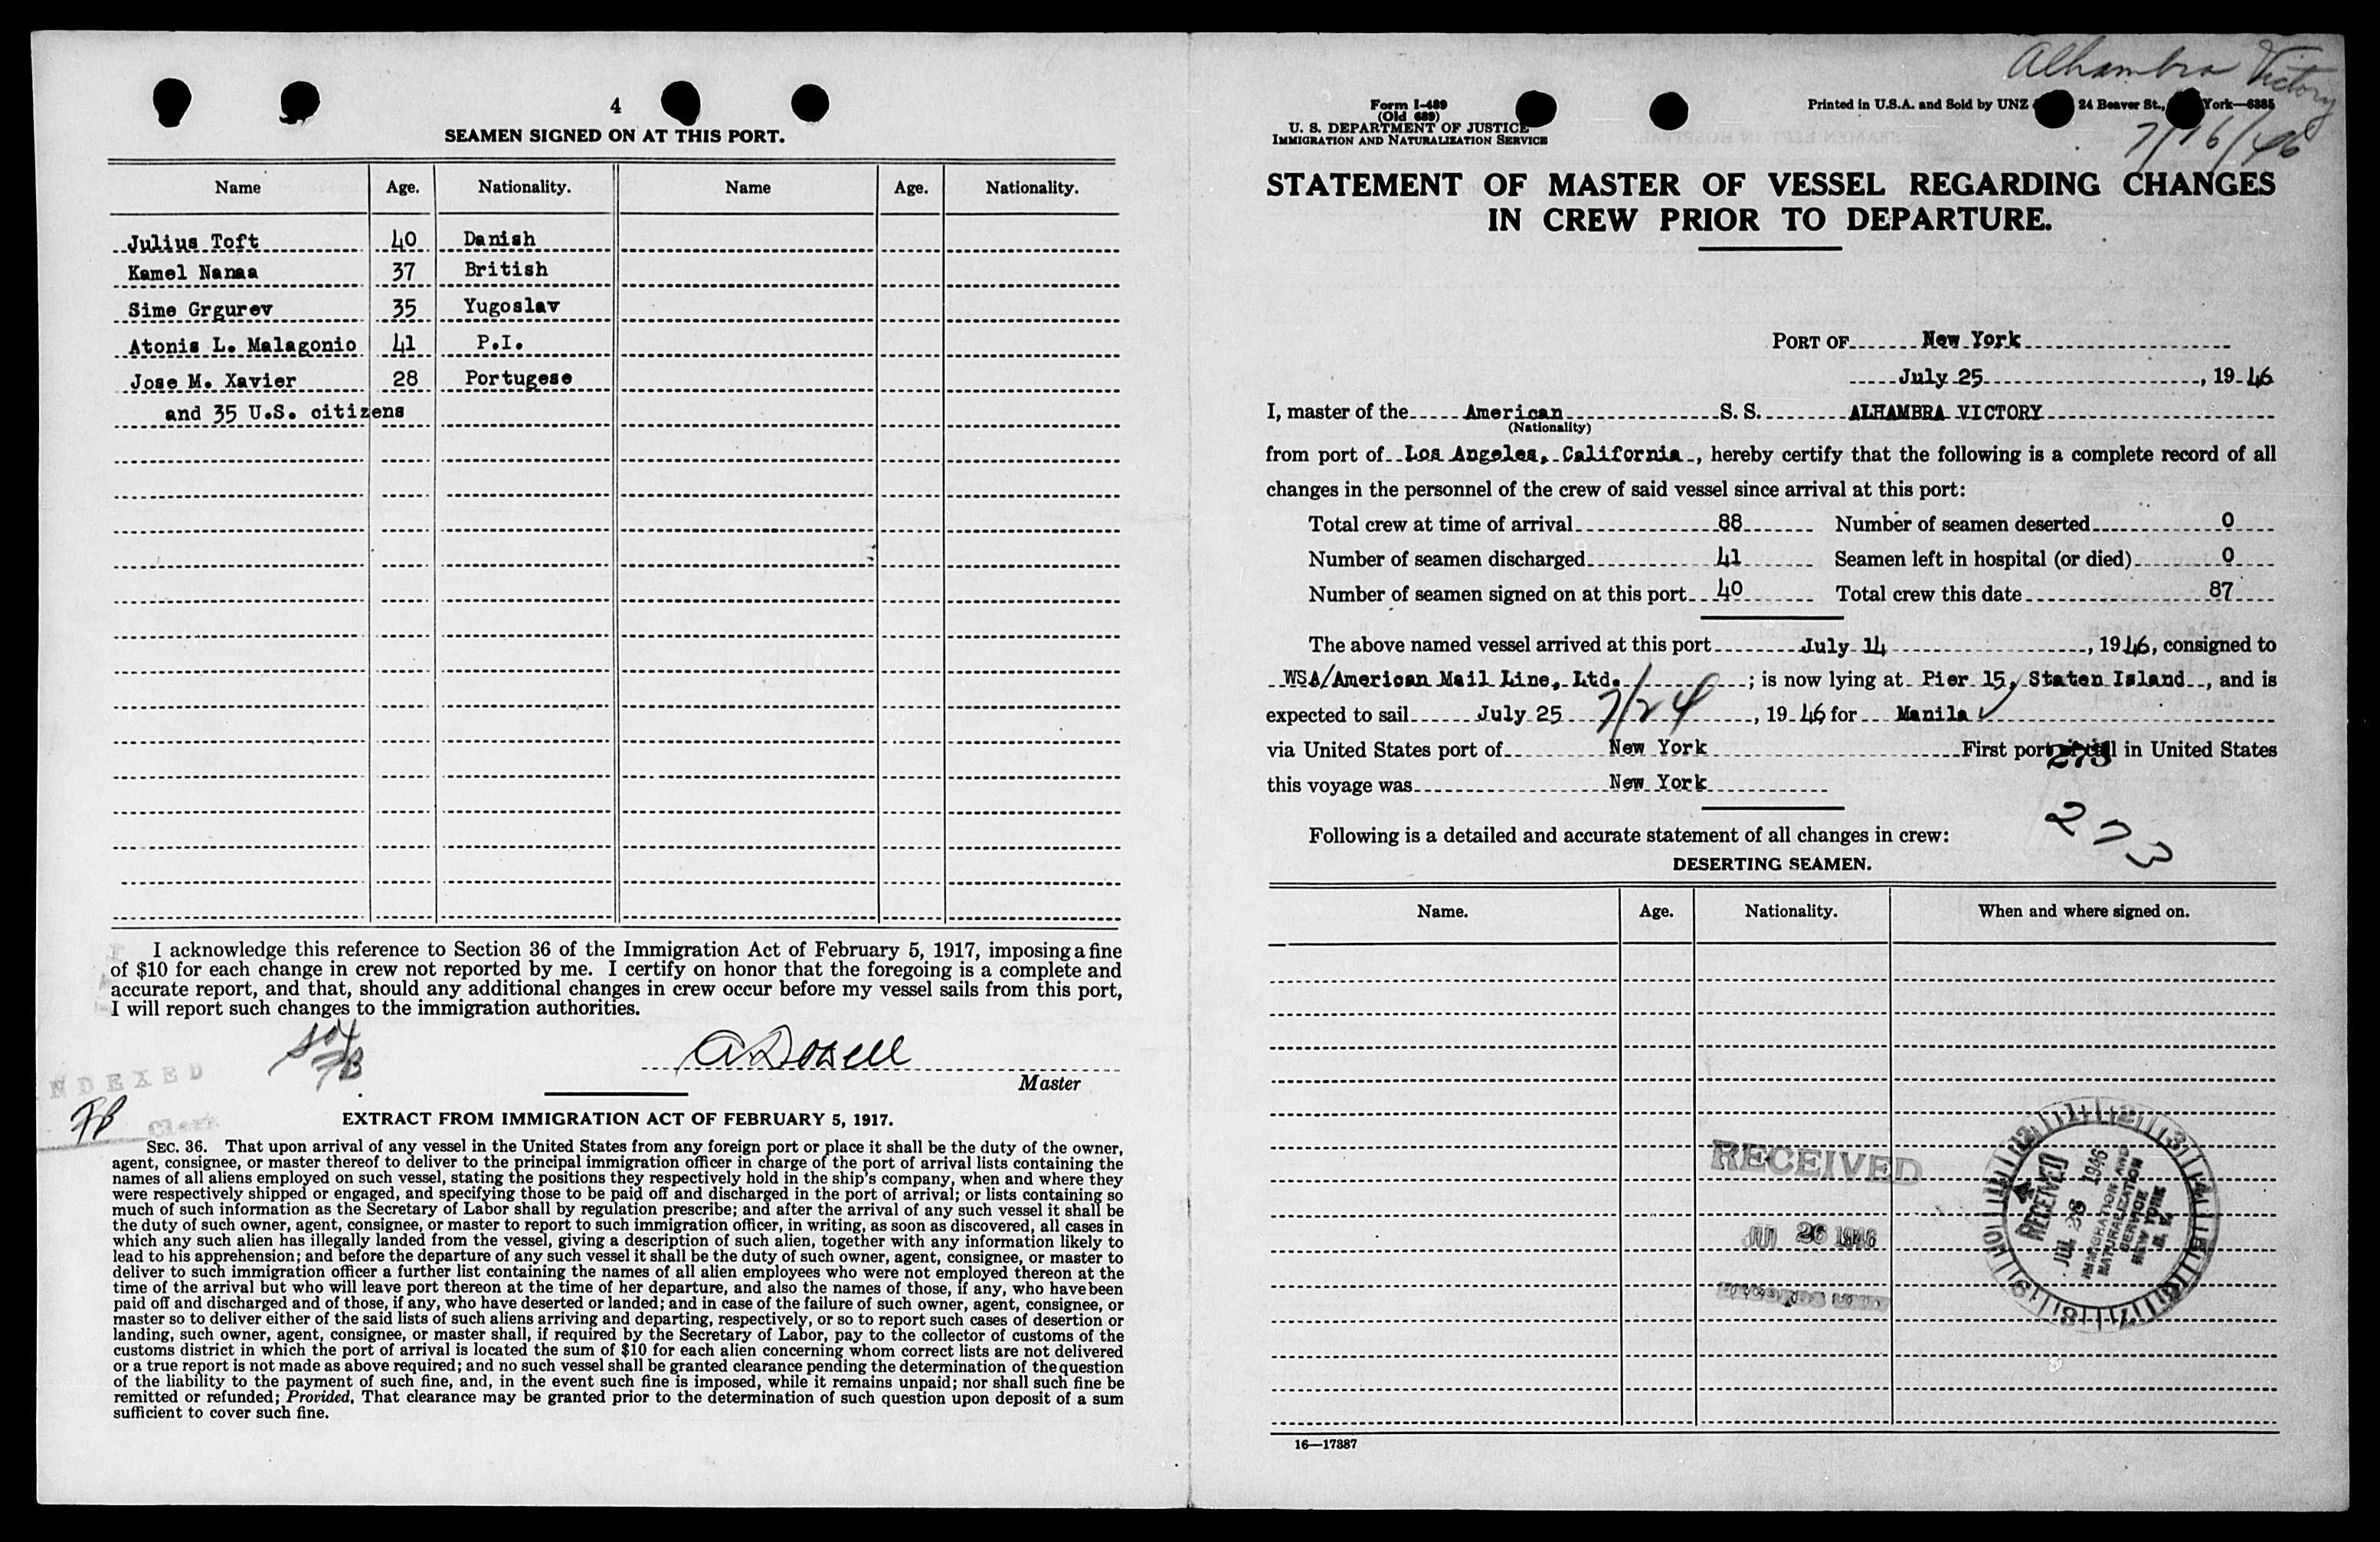 4
SEAMEN SIGNED ON AT THIS PORT.
Name Age. Nationality. Name Age. Nationality.
Julius Toft 40 Danish
Kamel Namaa 37 British
Sime Grgurev 35 Yugoslav
Atonis L. Malagonio 41 P.I.
Jose M. Xavier 28 Portugese
and 35 U.S. citizens
I acknowledge this reference to Section 36 of the Immigration Act of February 5, 1917, imposing a fine
of $10 for each change in crew not reported by me. I certify on honor that the foregoing is a complete and
accurate report, and that, should any additional changes in crew occur before my vessel sails from this port,
I will report such changes to the immigration authorities.
Master
NDEXED
Clerk
EXTRACT FROM IMMIGRATION ACT OF FEBRUARY 5, 1917.
SEC. 36. That upon arrival of any vessel in the United States from any foreign port or place it shall be the duty of the owner,
agent, consignee, or master thereof to deliver to the principal immigration officer in charge of the port of arrival lists containing the
names of all aliens employed on such vessel, stating the positions they respectively hold in the ship's company, when and where they
were respectively shipped or engaged, and specifying those to be paid off and discharged in the port of arrival; or lists containing so
much of such information as the Secretary of Labor shall by regulation prescribe; and after the arrival of any such vessel it shall be
the duty of such owner, agent, consignee, or master to report to such immigration officer, in writing, as soon as discovered, all cases in
which any such alien has illegally landed from the vessel, giving a description of such alien, together with any information likely to
lead to his apprehension; and before the departure of any such vessel it shall be the duty of such owner, agent, consignee, or master to
deliver to such immigration officer a further list containing the names of all alien employees who were not employed thereon at the
time of the arrival but who will leave port thereon at the time of her departure, and also the names of those, if any, who have been
paid off and discharged and of those, if any, who have deserted or landed; and in case of the failure of such owner, agent, consignee, or
master so to deliver either of the said lists of such aliens arriving and departing, respectively, or so to report such cases of desertion or
landing, such owner, agent, consignee, or master shall, if required by the Secretary of Labor, pay to the collector of customs of the
customs district in which the port of arrival is located the sum of $10 for each alien concerning whom correct lists are not delivered
or a true report is not made as above required; and no such vessel shall be granted clearance pending the determination of the question
of the liability to the payment of such fine, and, in the event such fine is imposed, while it remains unpaid; nor shall such fine be
remitted or refunded; Provided, That clearance may be granted prior to the determination of such question upon deposit of a sum
sufficient to cover such fine.
Alhambra Victory
7/16/46
Form I-489
(Old 689)
U. S. DEPARTMENT OF JUSTICE
IMMIGRATION AND NATURALIZATION SERVICE
Printed in U.S.A. and Sold by UNZ 24 Beaver St., York—6385
STATEMENT OF MASTER OF VESSEL REGARDING CHANGES
IN CREW PRIOR TO DEPARTURE.
PORT OF New York
July 25, 1946
I, master of the American S. S. ALHAMBRA VICTORY
(Nationality)
from port of Los Angeles, California, hereby certify that the following is a complete record of all
changes in the personnel of the crew of said vessel since arrival at this port:
Total crew at time of arrival 88 Number of seamen deserted 0
Number of seamen discharged 41 Seamen left in hospital (or died) 0
Number of seamen signed on at this port 40 Total crew this date 87
The above named vessel arrived at this port July 14, 1946, consigned to
WSA/American Mail Line, Ltd.; is now lying at Pier 15, Staten Island, and is
expected to sail July 25 7/24, 1946 for Manila
via United States port of New York First port 273 in United States
this voyage was New York
273
Following is a detailed and accurate statement of all changes in crew:
DESERTING SEAMEN.
Name. Age. Nationality. When and where signed on.
RECEIVED
26 1946
RECEIVED
JUL 26 1946
IMMIGRATION AND
NATURALIZATION
SERVICE
NEW YORK
N. Y.
16—17387